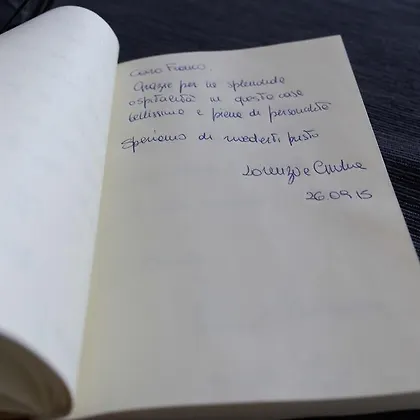 Caro Franco,
Grazie per la splendida
ospitalità in questa casa
bellissima e piena di personalità
Speriamo di rivederti presto
Lorenzo e
26.09.15